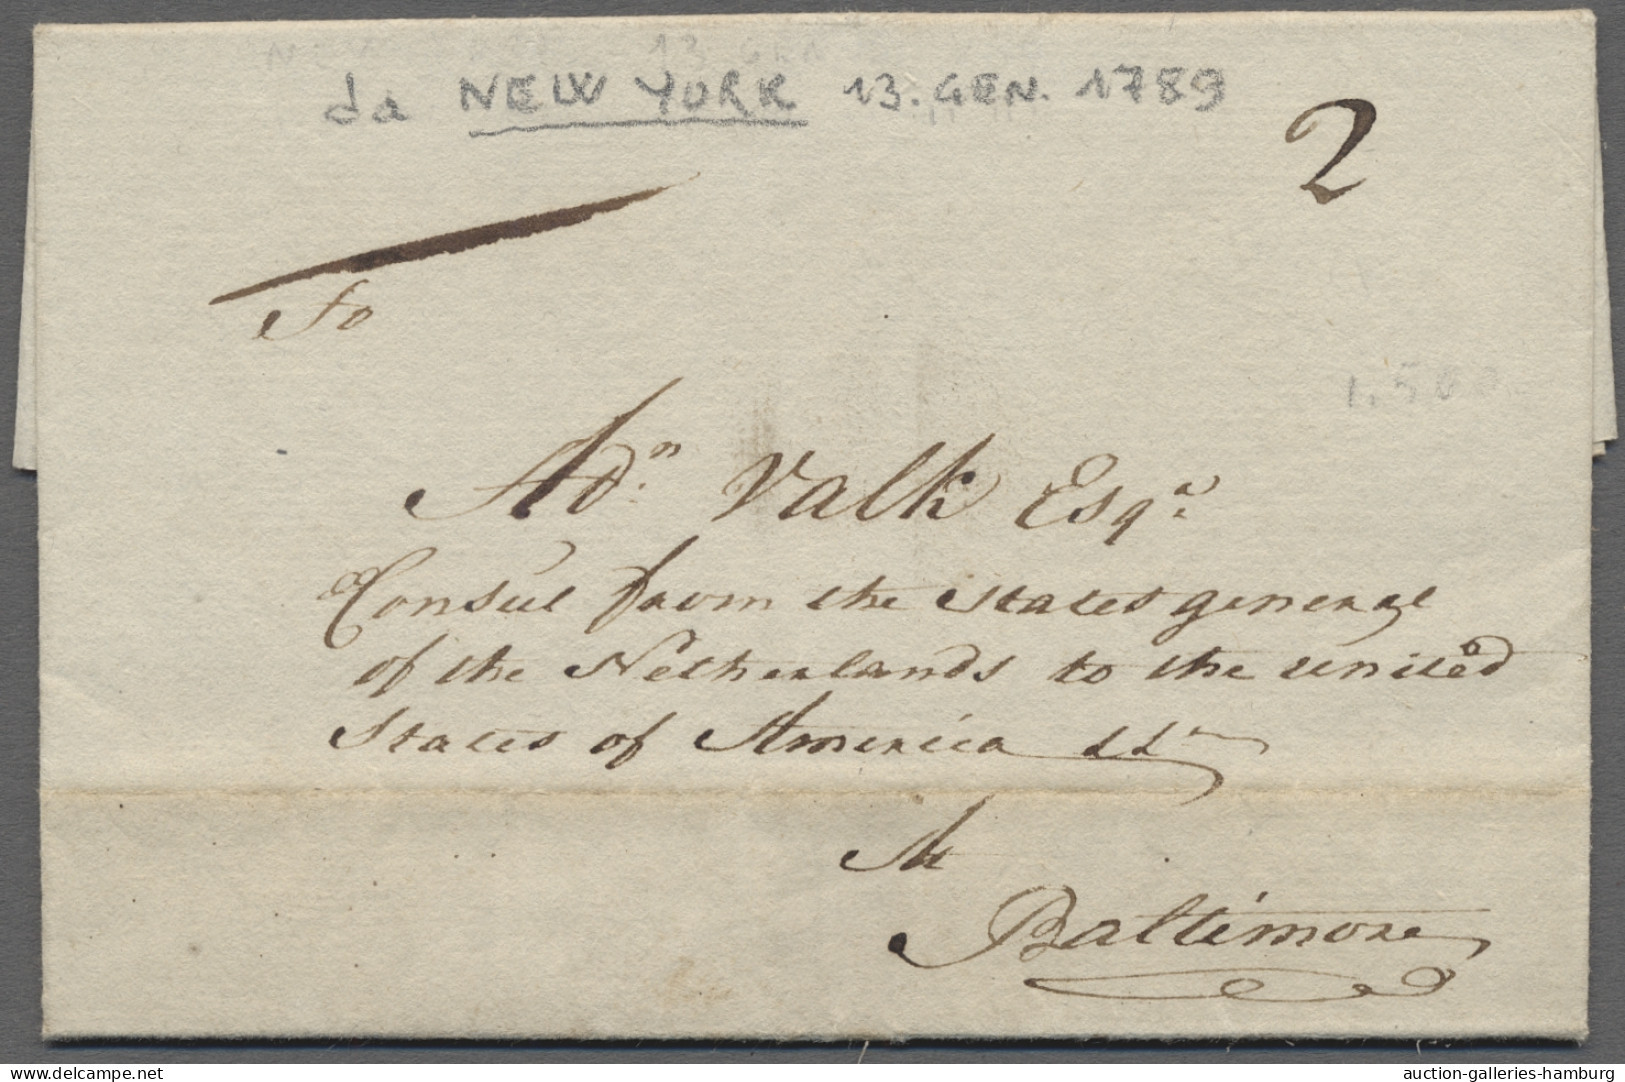 da NEW YORK 13. GEN. 1789
2
To
1.500
Adn. Valk Esqr.
Consul from the States general
of the Netherlands to the united
States of America &&
At
Baltimore
delcampe.net
auction-galleries-hamburg